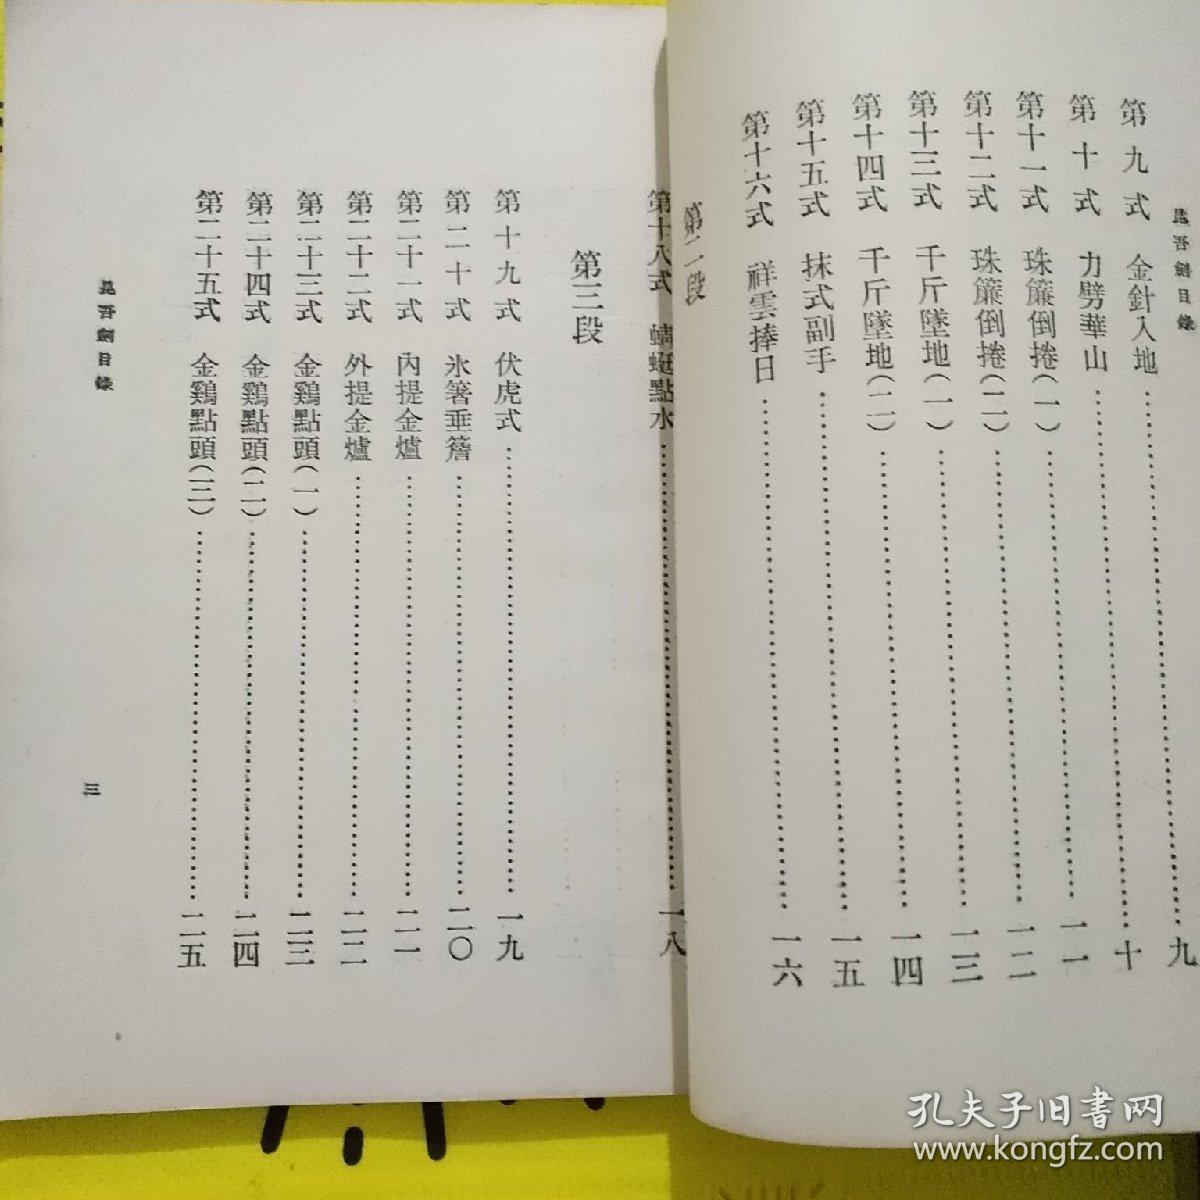 昆吾劍目錄
第九式 金針入地……九
第十式 力劈華山……十
第十一式 珠簾倒捲(一)……一一
第十二式 珠簾倒捲(二)……一二
第十三式 千斤墜地(一)……一三
第十四式 千斤墜地(二)……一四
第十五式 抹式副手……一五
第十六式 祥雲捧日……一六
第二段
第十八式 蜻蜓點水……一八
第三段
第十九式 伏虎式……一九
第二十式 氷箸垂簷……二〇
第二十一式 內提金爐……二一
第二十二式 外提金爐……二二
第二十三式 金鷄點頭(一)……二三
第二十四式 金鷄點頭(二)……二四
第二十五式 金鷄點頭(三)……二五
昆吾劍目錄
三
孔夫子旧書网
www.kongfz.com